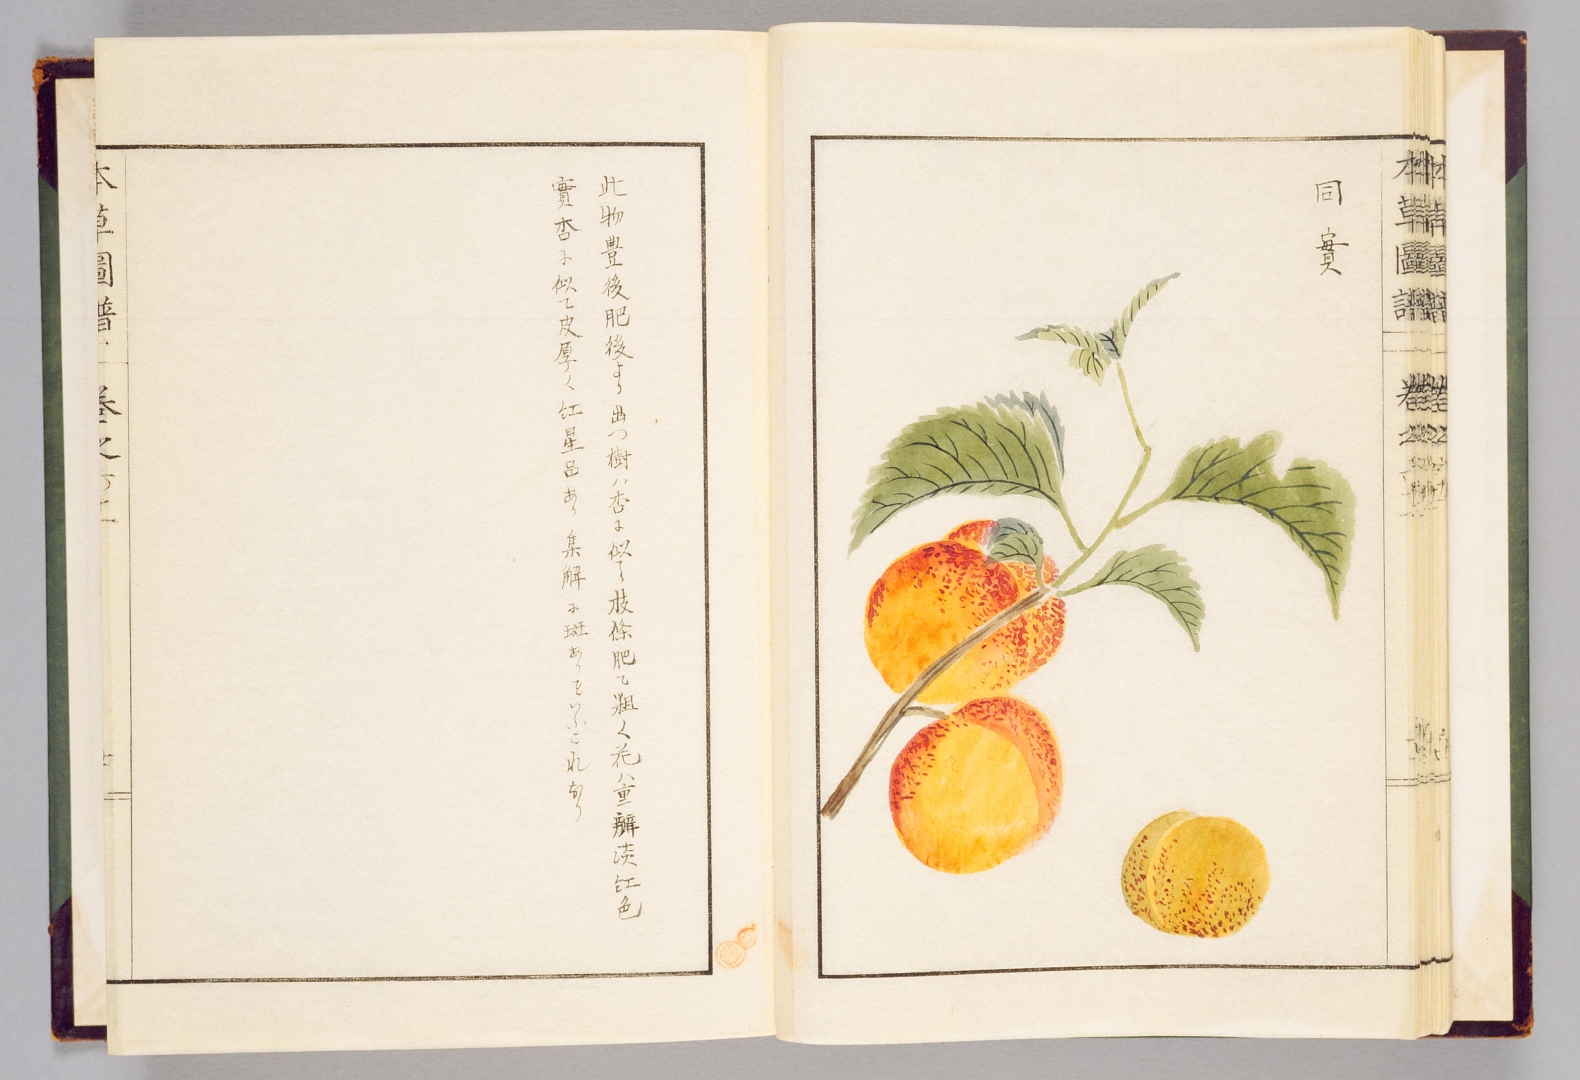 本草圖譜 卷之
同實
此物豊後肥後より出つ樹ハ杏に似て枝條肥て粗く花ハ重瓣淡紅色
實杏に似て皮厚く紅星点あり集解に斑ありといふこれなり
本草圖譜 卷之